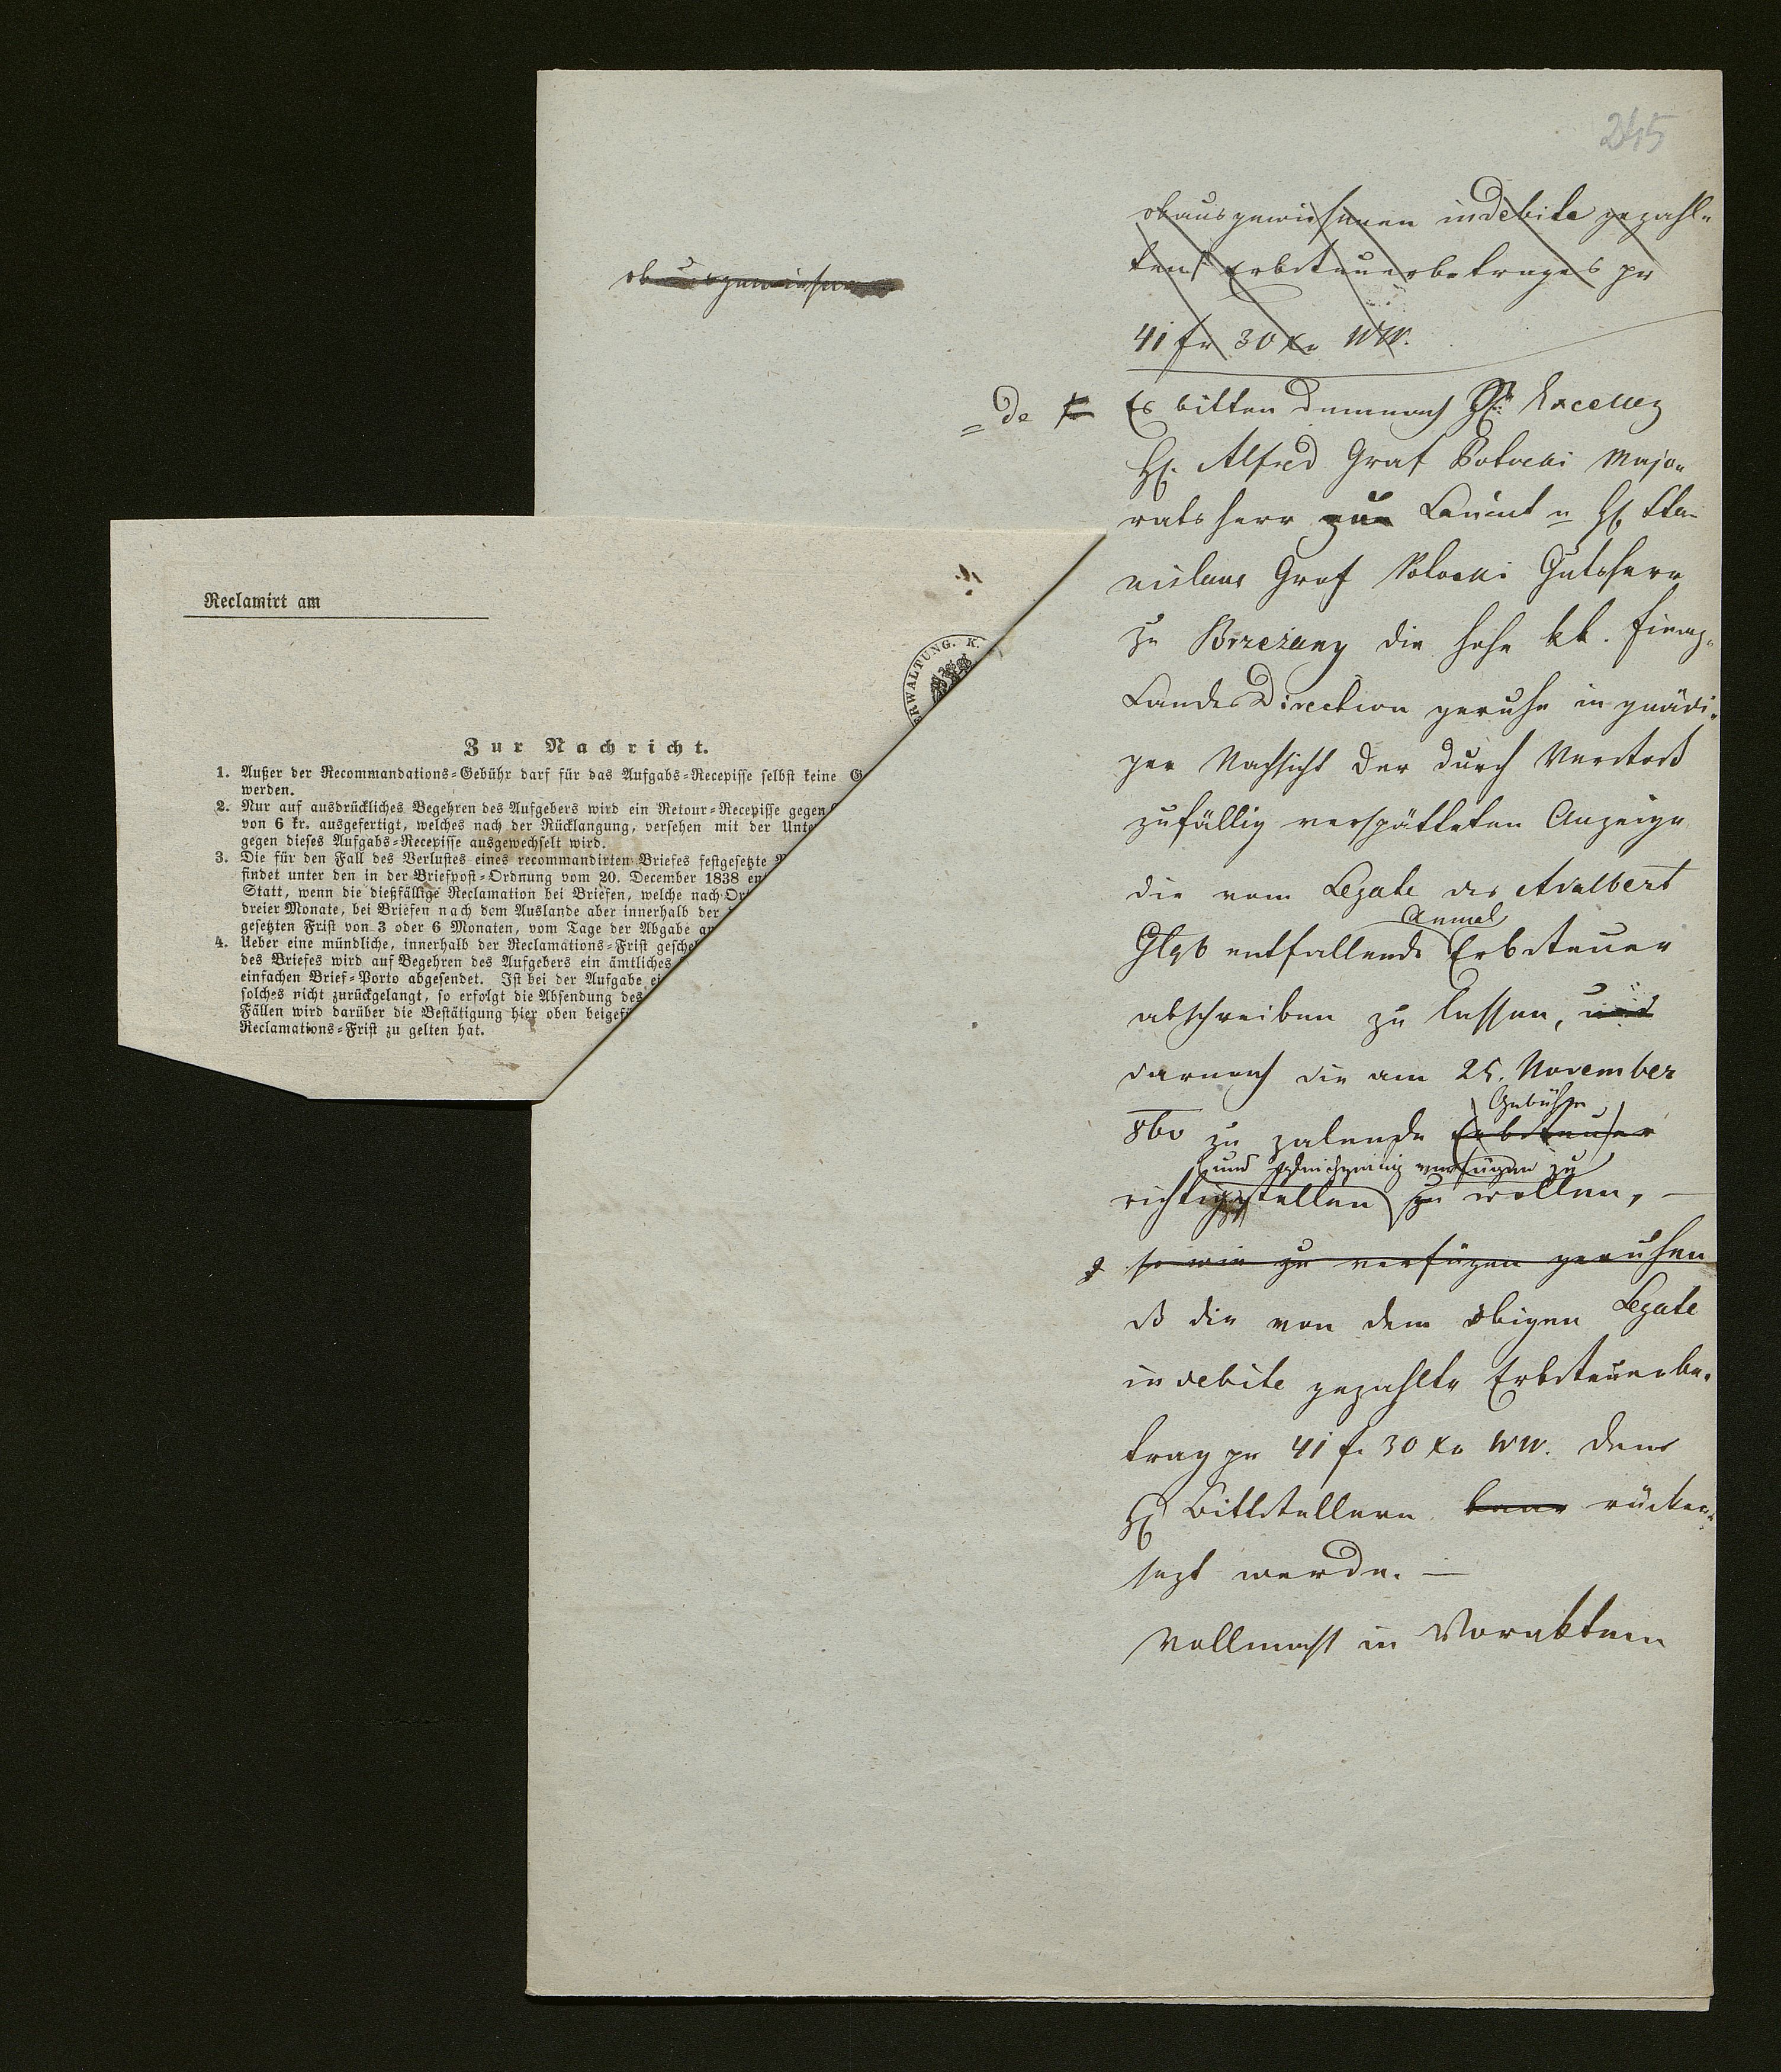 245
obausgewiesenen indebite gezahl-
ten Erbsteuerbetrages pr
41 fr 30 xr WW.
obausgewiesenen
= de
Es bitten demnach Se Excellez
H. Alfred Graf Potocki Majo-
ratsherr zu Lańcut u H. Sta-
nislaus Graf Potocki Gutsherr
zu Brzeżany die hohe kk. Finanz-
Landes Direction geruhe in gnädi-
ger Nachsicht der durch Verstoß
zufällig verspätteten Anzeige
die vom Legate des Adalbert
Anmal
entfallende Erbsteuer
abschreiben zu lassen, und
darnach die am 25. November
Gebühr
860 zu zalende Erbsteuer
und gleichzeitig verfügen zu
richtigstellen zu wollen, —
so wie zu verfügen geruhen
ß die von dem obigen Legate
indebite gezahlte Erbsteuerbe-
trag pr 41 f. 30 xr WW. dem
H Bittstellern rücker-
sezt werde. —
Vollmacht in Vorakten
Reclamirt am
RWALTUNG. K.
Zur Nachricht.
1. Außer der Recommandations-Gebühr darf für das Aufgabs-Recepisse selbst keine G
werden.
2. Nur auf ausdrückliches Begehren des Aufgebers wird ein Retour-Recepisse gegen
von 6 kr. ausgefertigt, welches nach der Rücklangung, versehen mit der Unte
gegen dieses Aufgabs-Recepisse ausgewechselt wird.
3. Die für den Fall des Verlustes eines recommandirten Briefes festgesetzte
findet unter den in der Briefpost-Ordnung vom 20. December 1838 en
Statt, wenn die dießfällige Reclamation bei Briefen, welche nach Or
dreier Monate, bei Briefen nach dem Auslande aber innerhalb der
gesetzten Frist von 3 oder 6 Monaten, vom Tage der Abgabe an
4. Ueber eine mündliche, innerhalb der Reclamations-Frist gesche
des Briefes wird auf Begehren des Aufgebers ein ämtliches
einfachen Brief-Porto abgesendet. Ist bei der Aufgabe ei
solches nicht zurückgelangt, so erfolgt die Absendung des
Fällen wird darüber die Bestätigung hier oben beigefü
Reclamations-Frist zu gelten hat.